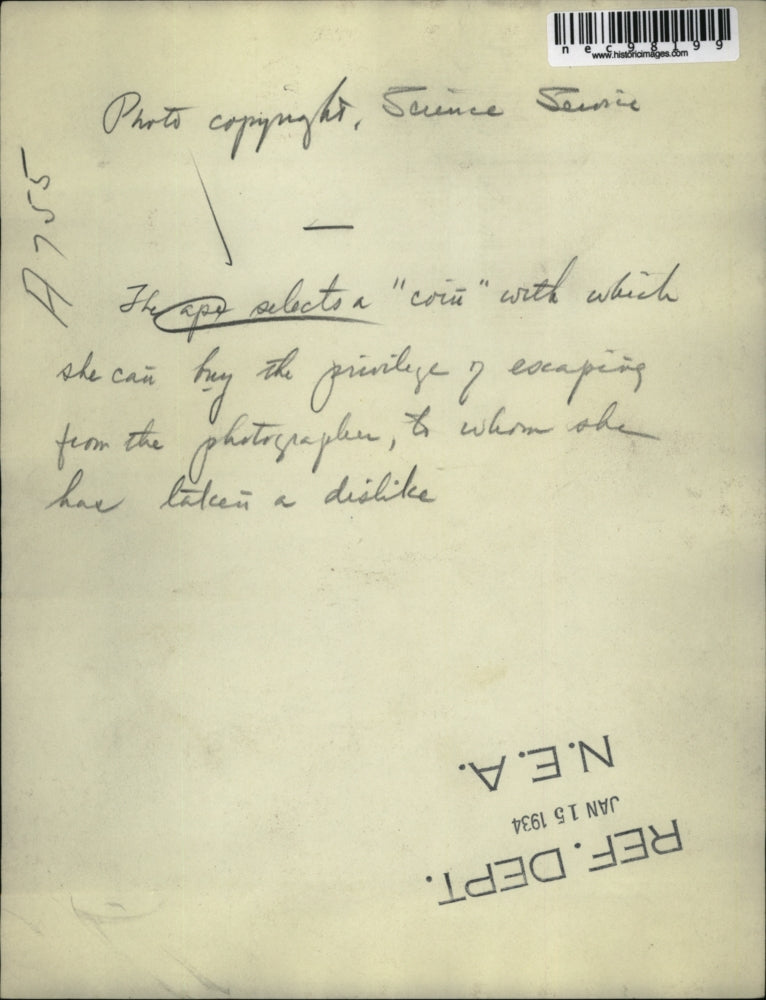 nec98199
www.historicimages.com
Photo copyright, Science Service
A755
The ape selects a "coin" with which
she can buy the privilege of escaping
from the photographer, to whom she
has taken a dislike
REF. DEPT.
JAN 15 1934
N.E.A.